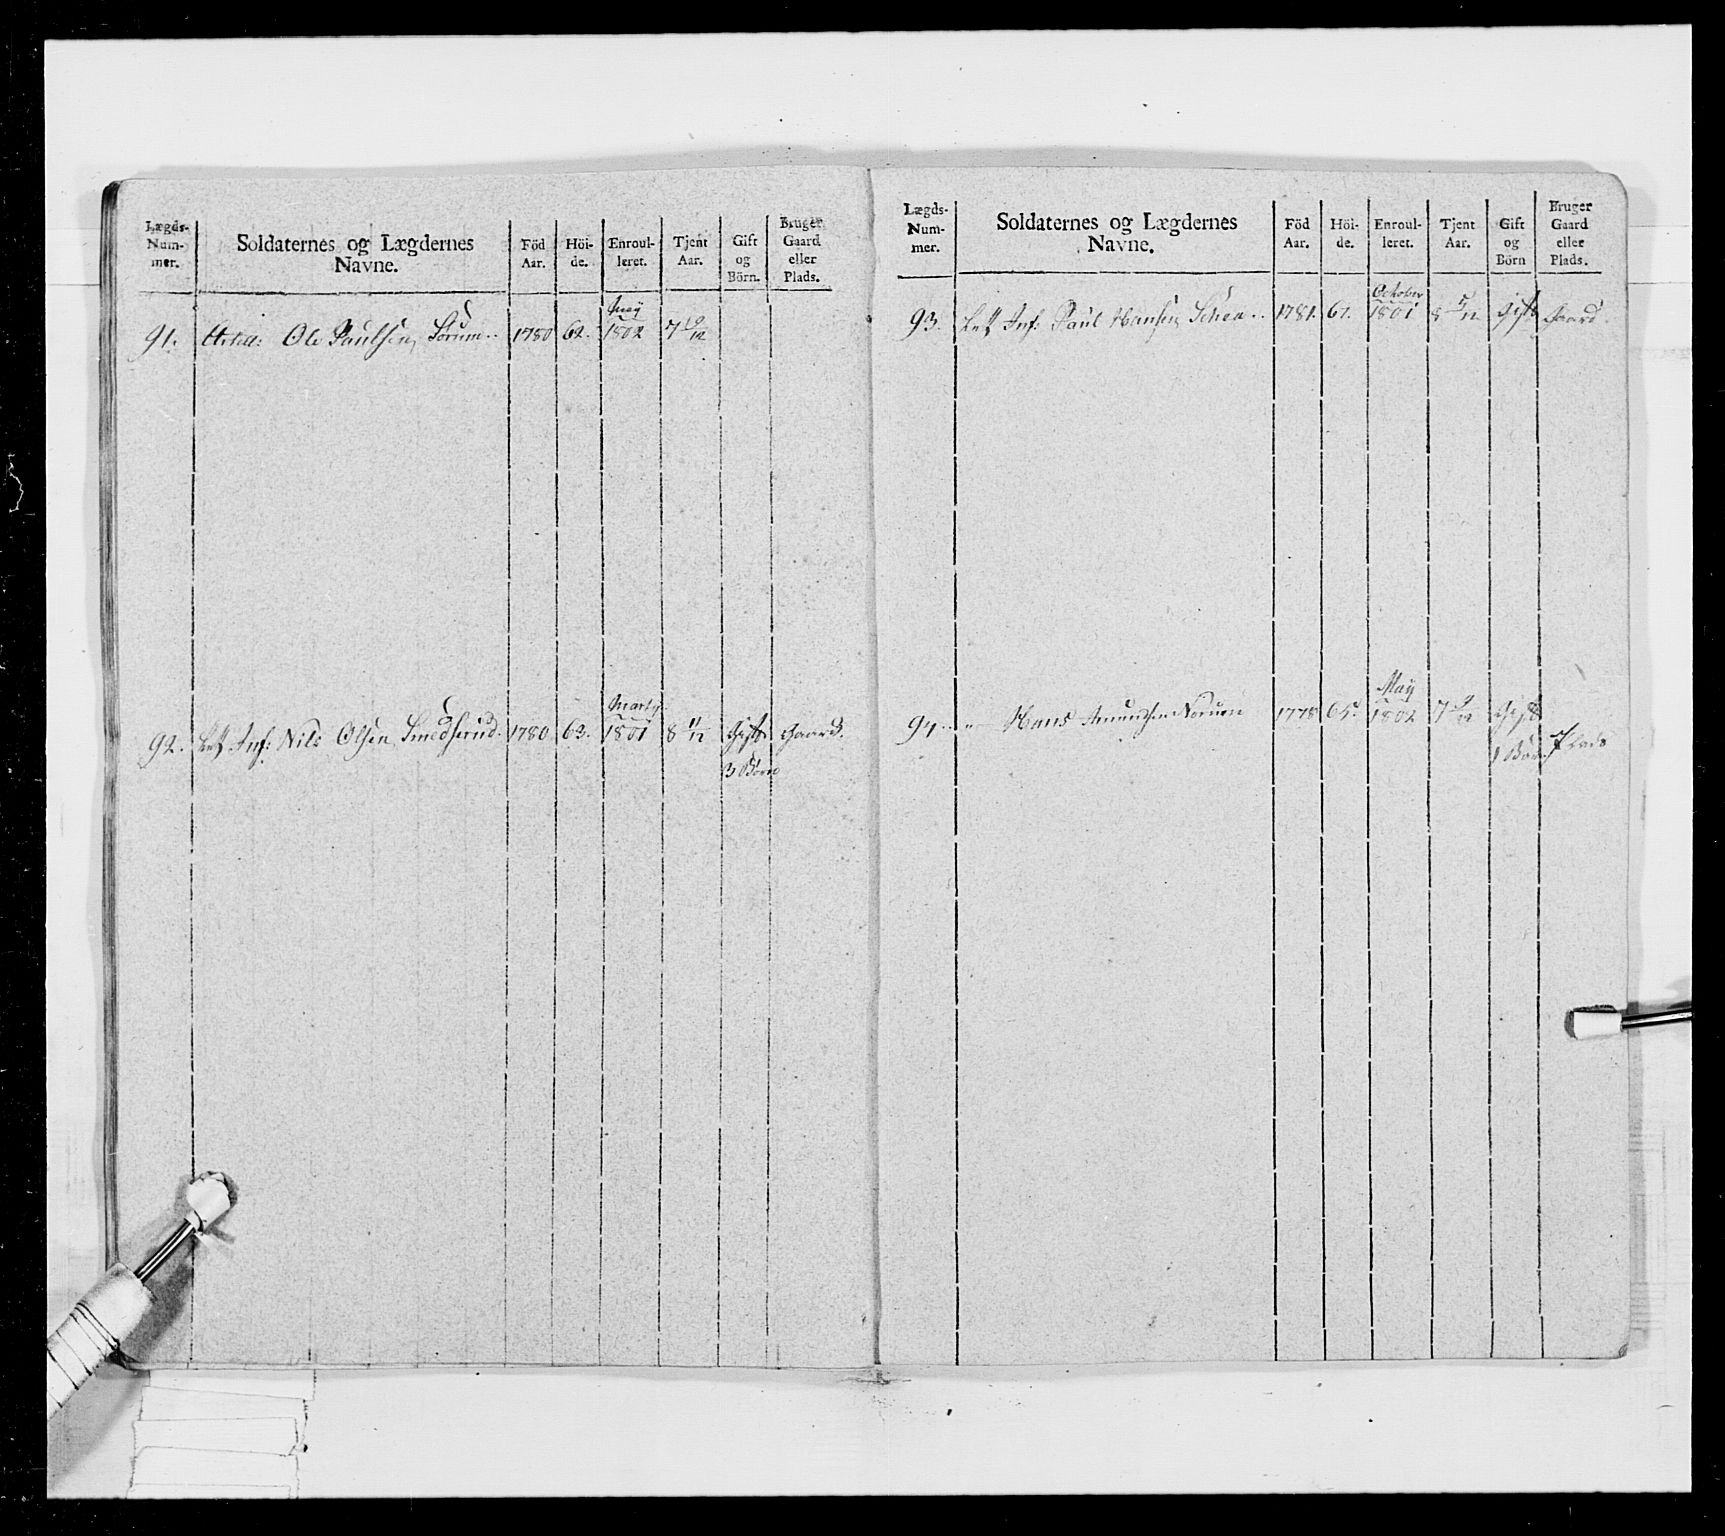 Lægds-
Num-
mer.
Soldaternes og Lægdernes
Navne.
Föd
Aar.
Höi-
de.
Enroul-
leret.
Tjent
Aar.
Gift
og
Börn.
Bruger
Gaard
eller
Plads.
May
91. Artill: Ole Paulsen Sorum.. 1780 62. 1802 7
Marty
92. Let Inf: Nils Olsen Smedsrud. 1780 63. 1801 8 11/12 Gift Gaard.
3 Börn
Lægds-
Num-
mer.
Soldaternes og Lægdernes
Navne.
Föd
Aar.
Höi-
de.
Enroul-
leret.
Tjent
Aar.
Gift
og
Börn
Bruger
Gaard
eller
Plads.
October
93. Let Inf: Paul Hansen 1781. 61. 1801 8 Gift Gaard.
May
94. " Hans Amundsen 1778 65. 1802 7 Gift
1 Börn Plads